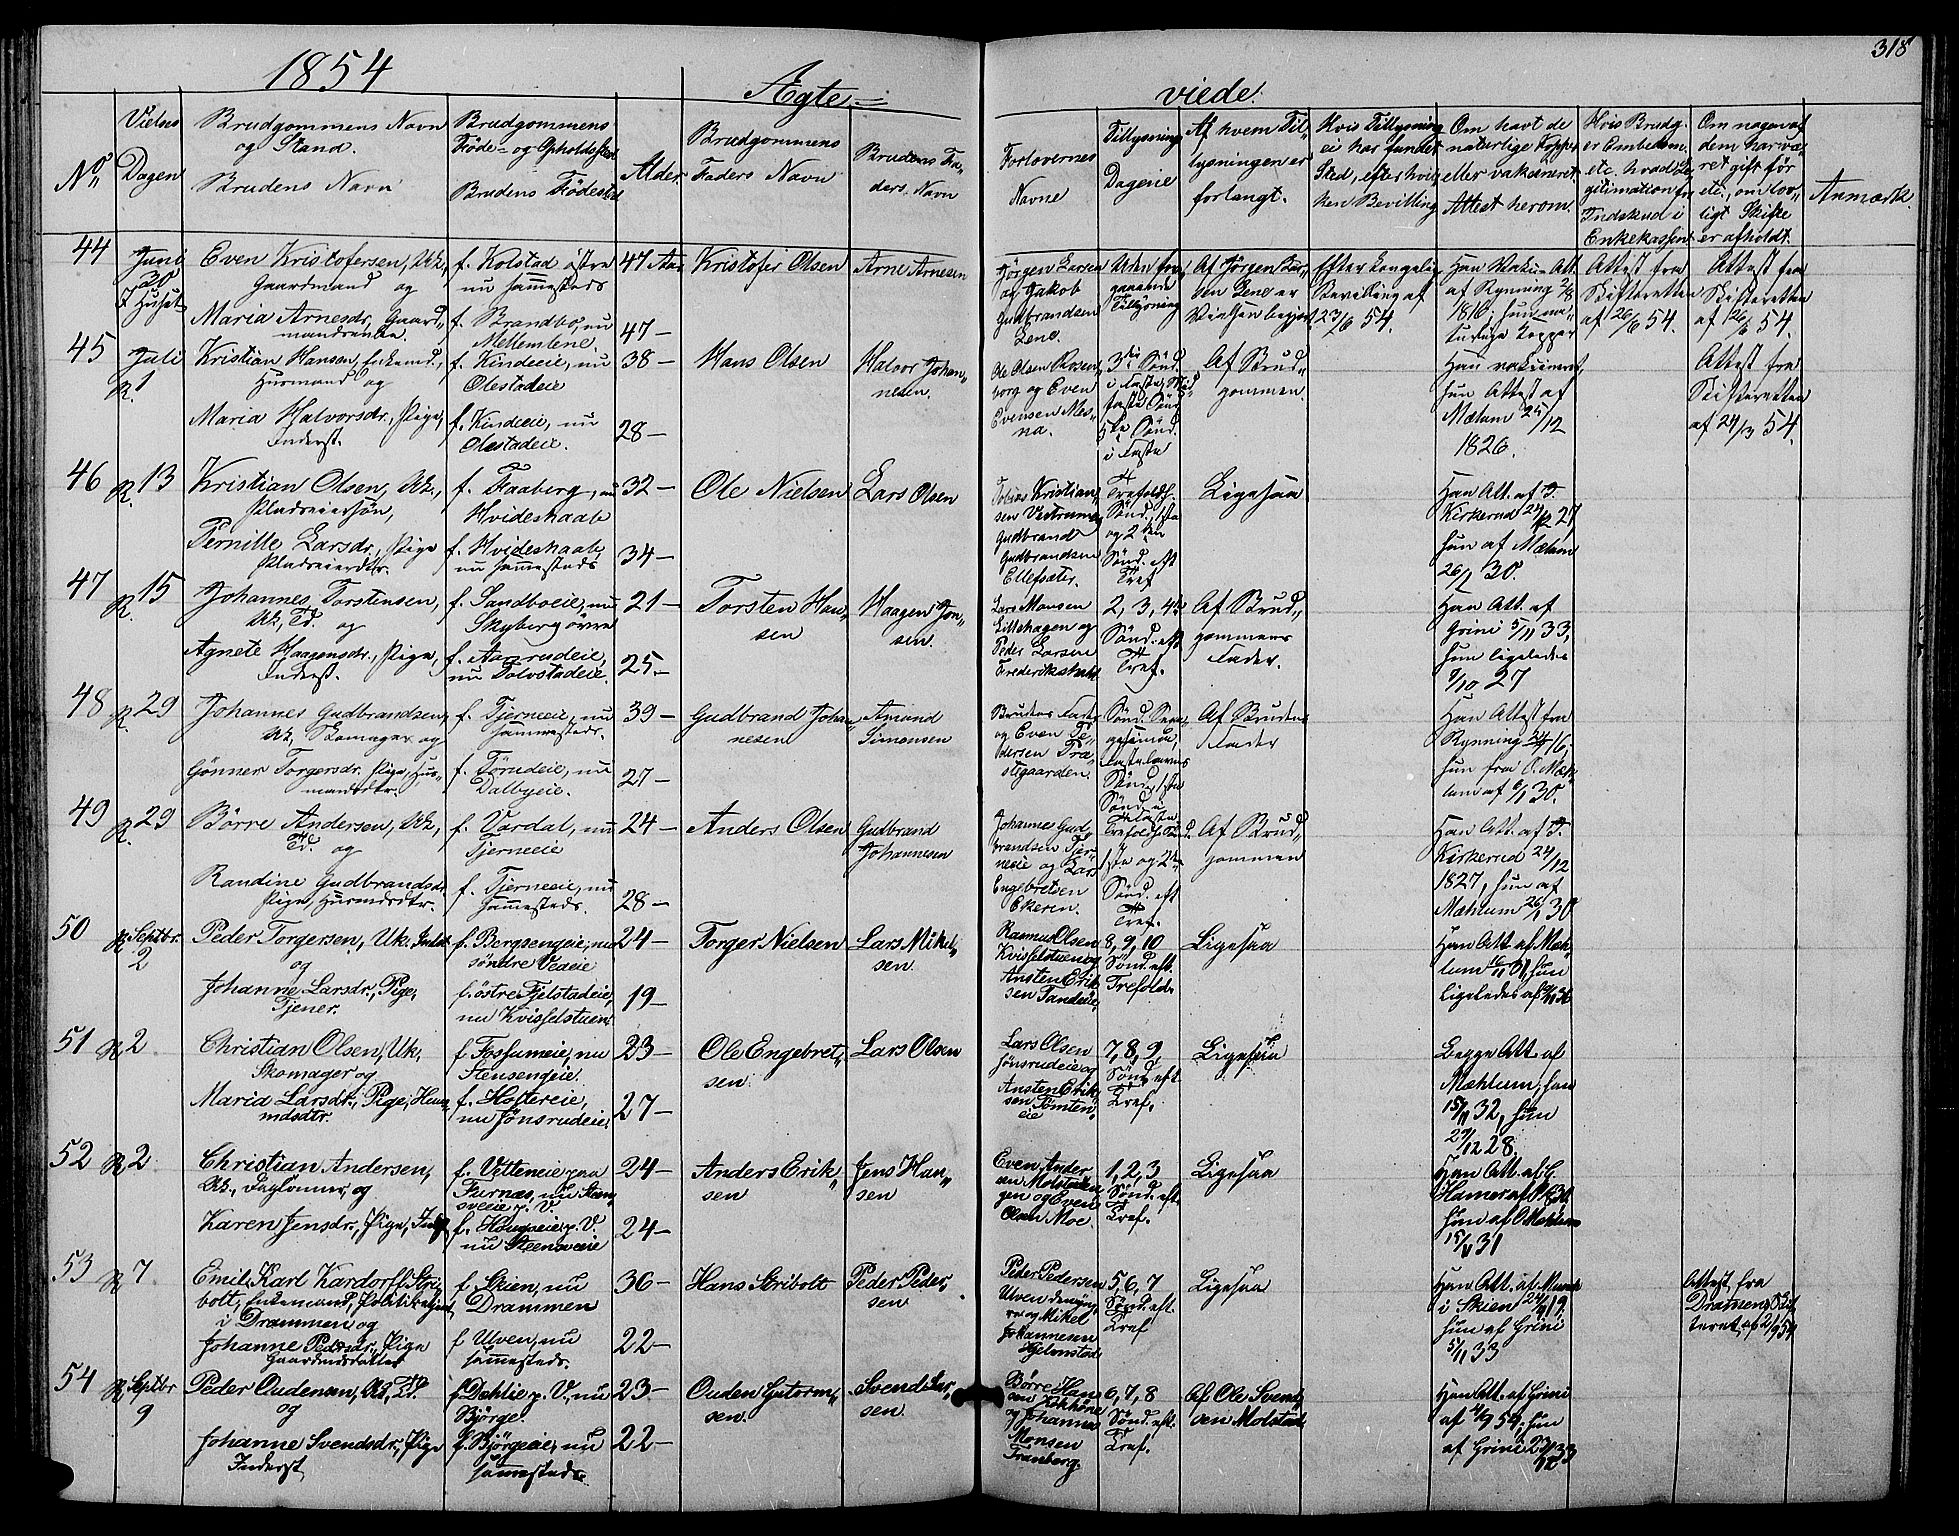 1854
Ægte=
viede.
318
No
Vielses Dagen
Brudgommens Navn
og Stand.
Brudens Navn
Brudgommens
Føde- og Opholdssted
Brudens Fødested
Alder
Brudgommens
Faders Navn
Brudens Fa-
ders Navn
Forlovernes
Navne
Tillysnings
Dagene
Af hvem Til-
lysningen er
forlangt.
Hvis Tillysning
ei har fundet
Sted, efter hvil-
ken Bevilling
Om havt de
naturlige Kopper
eller vakcineret
Attest herom.
Hvis Brudg.
er Embedsm.
etc. hvad Le-
gitimation for
Indskud i
Enkekassen
Om nogen af
dem har væ-
ret gift før
etc., om lov-
ligt Skifte
er afholdt.
Anmærk.
44
Juni
30
I Huset
Even Kristofersen, Uk.,
Gaardmand og
Maria Arnesdr, Gaard-
mandsenke.
f. Kolstad östre
nu sammesteds
f. Brandbo, nu
Mellemlene.
47 Aar
47 —
Kristofer Olsen
Arne Arnesen
Jörgen Larsen
og Jakob
Gudbrandsen
Lene.
Uden fore-
gaaende
Tillysning
Af Jörgen Lar-
sen Lene er
Vielsen begjært
Efter kongelig
Bevilling af
23/6 54.
Han Vakc. Att.
af Rynning 2/8
1816, hun na-
turlige Kopper
Attest fra
Skifteretten
af 26/6 54.
Attest fra
Skifteretten
af 26/6 54.
45
Juli
R. 1
Kristian Hansen, Enkemd.,
Husmand og
Maria Halvorsdr., Pige,
Inderst.
f. Kindeeie, nu
Olestadeie
f. Kindeeie, nu
Olestadeie.
38 —
28 —
Hans Olsen
Halvor Johan-
nesen.
Ole Olsen Rosen-
borg og Even
Evensen Mes-
na.
3die Sönd.
i Faste, Mid-
faste Sönd
5te Sönd.
i Faste
Af Brud-
gommen.
Han vakcineret,
hun Attest af
Mælum 25/12
1826.
Attest fra
Skifteretten
af 24/3 54.
46
R. 13
Kristian Olsen, Uk.,
Pladseiersön,
Pernille Larsdr., Pige
Pladseierdtr.
f. Faaberg, nu
Hvideskaale
f. Hvideskaale,
nu sammesteds
32 —
34 —
Ole Nielsen
Lars Olsen
Tobias Kristian-
sen Vestrum og
Gudbrand
Gudbrandsen
Ellefsæter.
Trefoldh.
Sönd., 1ste
og 2den
Sönd. eft
Tref
Ligesaa
Han Att. af T.
Kirkerud 24/12 27
hun af Mælum
26/1 30.
47
R. 15
Johannes Torstensen,
Uk, Td. og
Agnete Haagensdr., Pige,
Inderst.
f. Sandboeie, nu
Skyberg övre
f. Aanrudeie,
nu Tolvstadeie.
21 —
25 —
Torsten Han-
sen
Haagen Jon-
sen.
Lars Monsen
Lillehagen og
Peder Larsen
Frederikskald
2, 3, 4de
Sönd. eft
Tref.
Af Brud-
gommens
Fader.
Han Att. af
Grini 5/11 33,
hun ligeledes
9/10 27
48
R. 29
Johannes Gudbrandsen,
Uk, Skomager og
Gönner Torgersdr. Pige, Hus-
mandsdtr.
f. Tjerneeie, nu
sammesteds.
f. Törudeie, nu
Dalbyeie.
39 —
27 —
Gudbrand Johan-
nesen
Amund
Simensen
Brudens Fader
og Even Pe-
dersen Præ-
stegaarden.
Sönd. Septua-
gesima,
Fastelavens
Sönd., 1ste
Sönd. i
Faste
Af Brudens
Fader
Han Attest fra
Rynning 24/7 16,
hun fra O. Mæh-
lum af 6/1 30.
49
R. 29
Börre Andersen, Uk,
Td. og
Randine Gudbrandsdr.
Pige, Husmdsdtr.
f. Vardal, nu
Tjerneeie
f. Tjerneeie, nu
sammesteds.
24 —
28 —
Anders Olsen
Gudbrand
Johannesen
Johannes Gud-
brandsen Tjer-
neeie og Lars
Engebretsen
Ekeren.
Trefoldh. Sönd.
1ste og 2den
Sönd. eft
Tref.
Af Brud-
gommen
Han Att. af T.
Kirkerud 24/12
1827, hun af
Mæhlum 26/1 30
50
R. Septbr.
2
Peder Torgersen, Uk. Inderst
og
Johanne Larsdr., Pige,
Tjener.
f. Bergsengeie, nu
söndre Vedeie
f. östre Fjelstadeie,
nu Kvisselstuen.
24 —
19 —
Torger Nielsen
Lars Mikel-
sen.
Rasmus Olsen
Kvisselstuen og
Ansten Erik-
sen Tandeie
8, 9, 10
Sönd. eft.
Trefoldh.
Ligesaa
Han Att. af Mæh-
lum 16/11 31, hun
ligeledes af 9/11 36
51
R. 2
Christian Olsen, Uk,
Skomager og
Maria Larsdr., Pige, Hus-
mdsdtr.
f. Fossumeie, nu
Stensengeie.
f. Hoftereie,
nu Jönsrudeie.
23 —
27 —
Ole Engebret-
sen.
Lars Olsen
Lars Olsen
Jönsrudeie og
Ansten Erik-
sen Tömten-
eie
7, 8, 9,
Sönd. eft.
Tref.
Ligesaa
Begge Att. af
Mæhlum, han
15/11 32, hun
29/12 28.
52
R. 2
Christian Andersen,
Uk., Daglönner, og
Karen Jensdr., Pige, Inderst
f. Vetteneie paa
Furnæs, nu Steen-
sveie p. V.
f. Kongseie p. V.
nu Steensveie
24 —
24 —
Anders Erik-
sen
Jens Han-
sen
Even Ander
sen Molstaden-
gen og Even
Olsen Moe.
1, 2, 3
Sönd. eft.
Tref.
Ligesaa
hun af O Mæhlum
15/11 31
53
R. 7
Emil Karl Kardorff Stri-
bolt, Enkemand, Politibetjent
i Drammen og
Johanne Pedersdr., Pige
Gaardmdsdatter
f. Skien, nu
Drammen
f. Ulven, nu
sammesteds.
36 —
22 —
Hans Stribolt
Peder Peder-
sen.
Peder Pedersen
Ulven den yng-
re og Mikel
Johannesen
Hjelmstad
5, 6, 7
Sönd. eft.
Tref
Ligesaa
Han Att. af Munch
i Skien 24/9 19.
hun af Grini
5/11 33
Attest fra
Dramens Skif-
teret af 2/9 54
54
R. Septbr
9
Peder Oudensen, Uk, Td.
og
Johanne Svendsdr., Pige
Inderst
f. Dæhlie p. V., nu
Björge.
f. Björgeeie, nu
sammesteds.
23 —
22 —
Ouden Guttorm-
sen.
Svend Lar-
sen.
Börre Han
sen Kokköne
og Johannes
Monsen
Franberg
6, 7, 8
Sönd. eft.
Tref.
Af Ole Svend-
sen Molstad
Han Att. af Grini
af 4/9 54, hun
af Grini 23/12 33